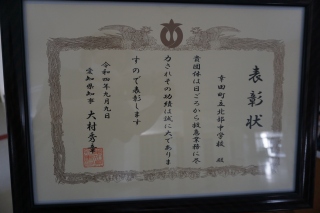 表彰状
幸田町立北部中学校 殿
貴団体は日ごろから救急業務に尽
力されその功績は誠に大であります
すので表彰します
令和四年九月九日
愛知県知事 大村秀章